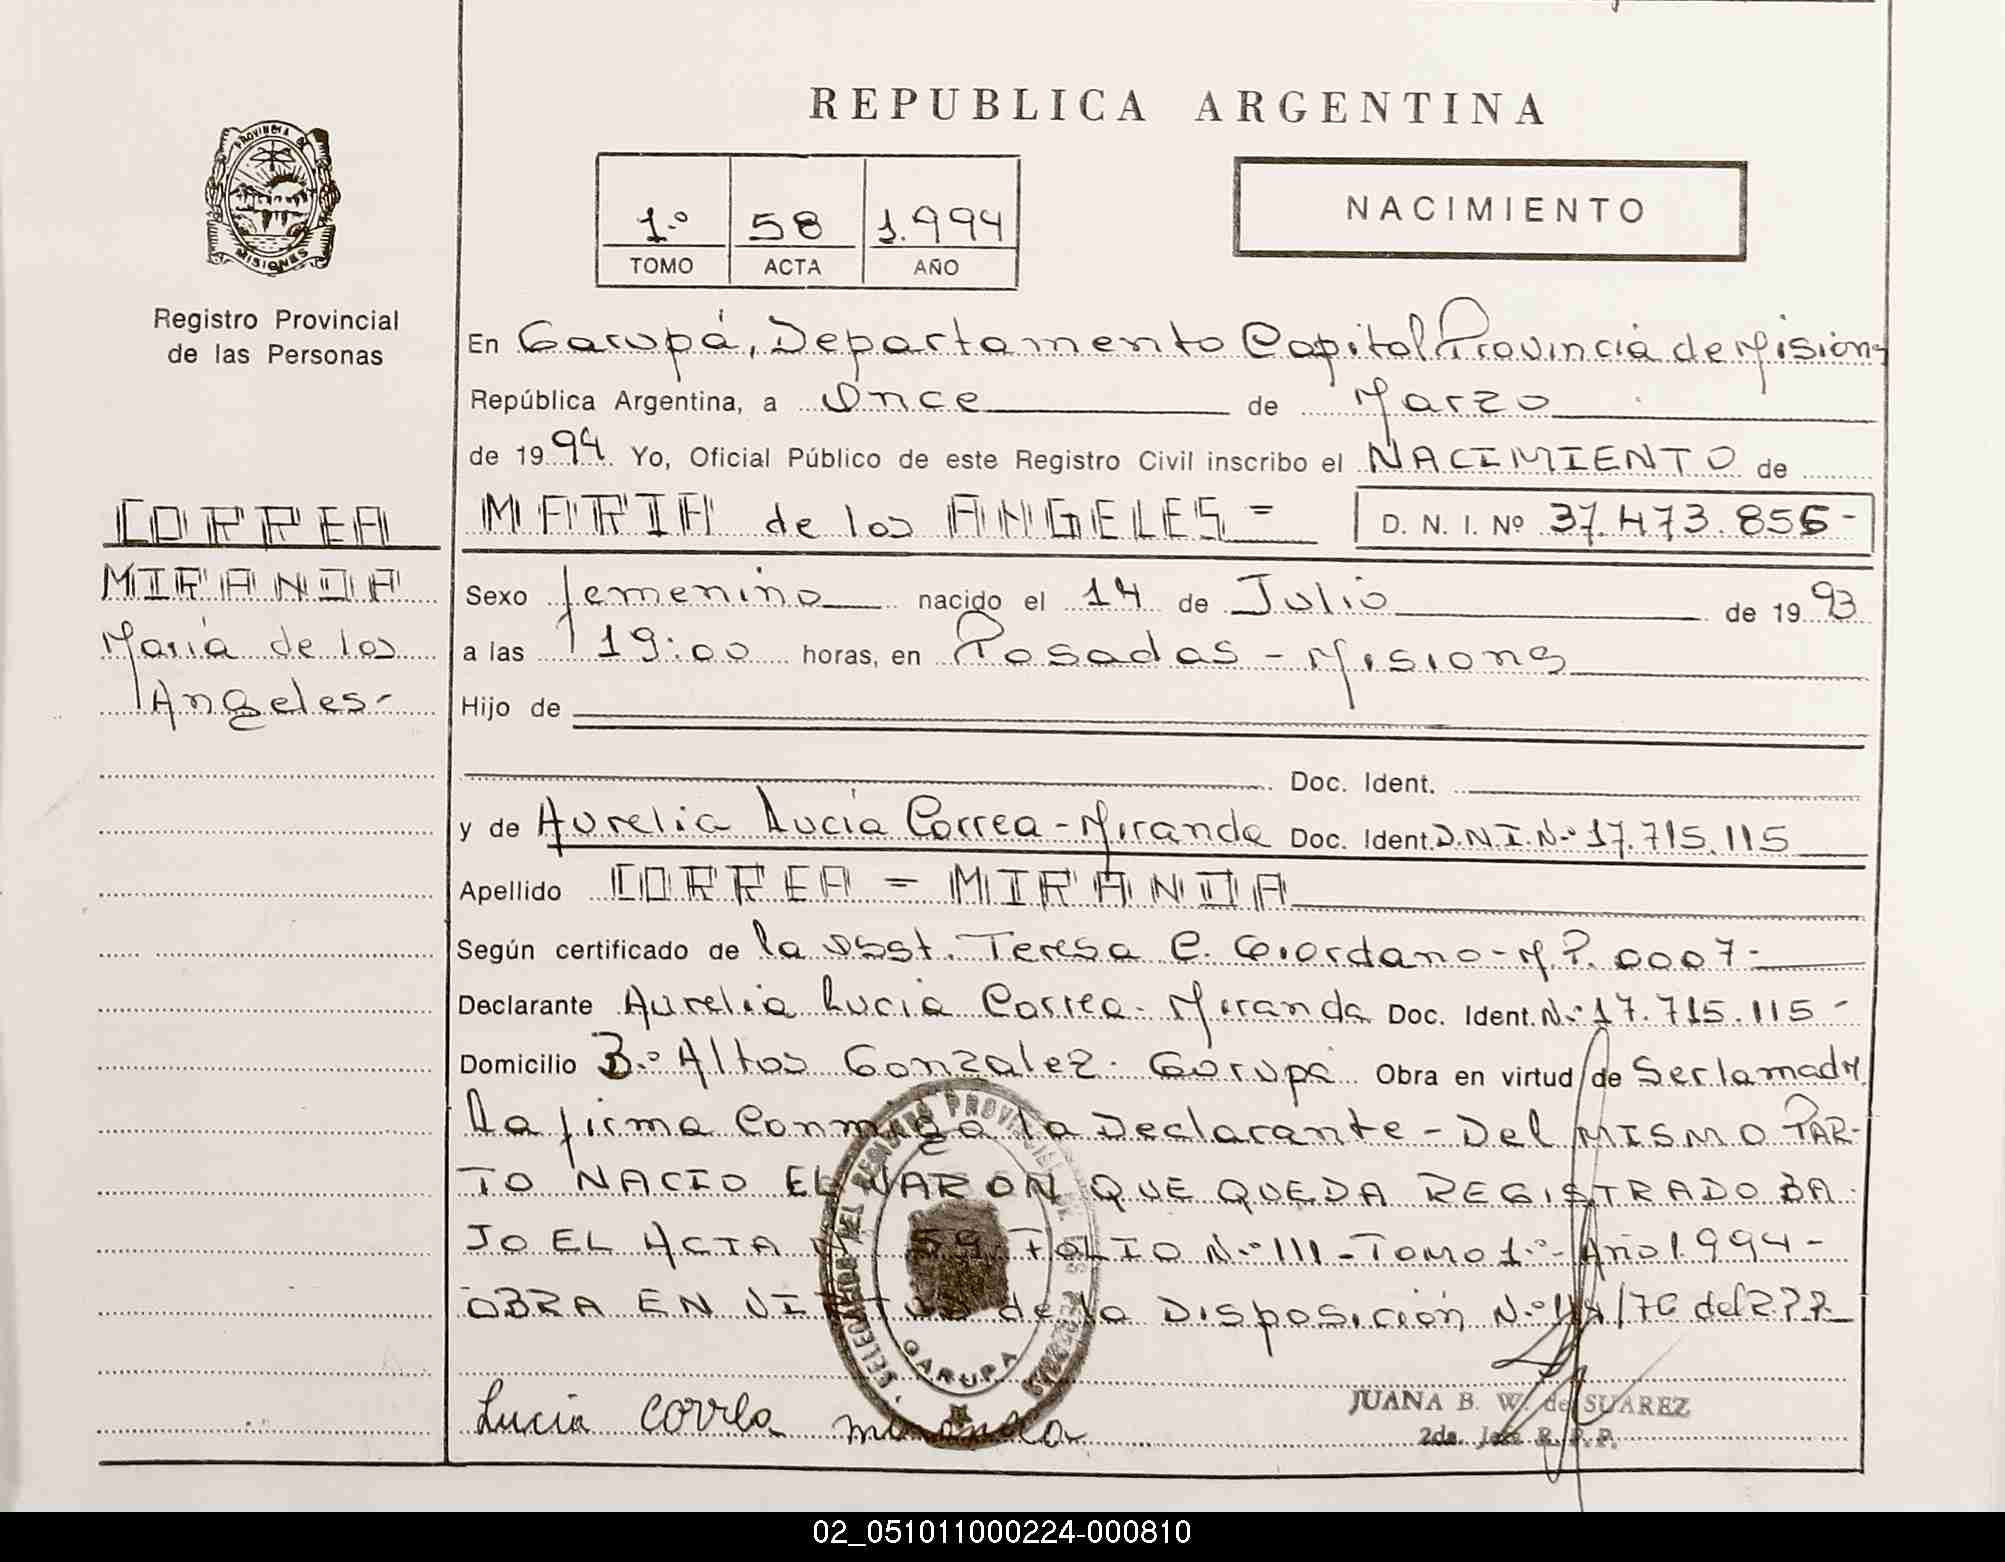 REPUBLICA ARGENTINA
PROVINCIA DE MISIONES
1.º 58 1.994
TOMO ACTA AÑO
NACIMIENTO
Registro Provincial
de las Personas
CORREA
MIRANDA
María de los
Angeles-
En Garupá, Departamento Capital Provincia de Mision
República Argentina, a Once de Marzo
de 1994 Yo, Oficial Público de este Registro Civil inscribo el NACIMIENTO de
MARIA de los ANGELES = D. N. I. Nº 37.473.856-
Sexo femenino nacido el 14 de Julio de 1993
a las 19:00 horas, en Posadas - Misions
Hijo de
Doc. Ident.
y de Aurelia Lucía Correa - Miranda Doc. Ident. D.N.I.N.º 17.715.115
Apellido CORREA = MIRANDA
Según certificado de la Obst. Teresa C. Giordano - M.P. 0007-
Declarante Aurelia Lucia Correa - Miranda Doc. Ident. N.º 17.715.115-
Domicilio B.º Altos Gonzalez - Garupá Obra en virtud de Ser la madre
La firma Conmigo la Declarante - Del MISMO PAR-
TO NACIO EL VARON QUE QUEDA REGISTRADO BA-
JO EL ACTA 59 FOLIO N.º 111 - Tomo 1.º - Año 1.994 -
OBRA EN VIRTUD de la Disposición N.º /76 del R.P.P.
Lucia Correa miranda
DELEGACION DEL REGISTRO PROVINCIAL DE LAS PERSONAS
GARUPA
JUANA B. W. de SUAREZ
2da. Jefe R. P. P.
02_051011000224-000810